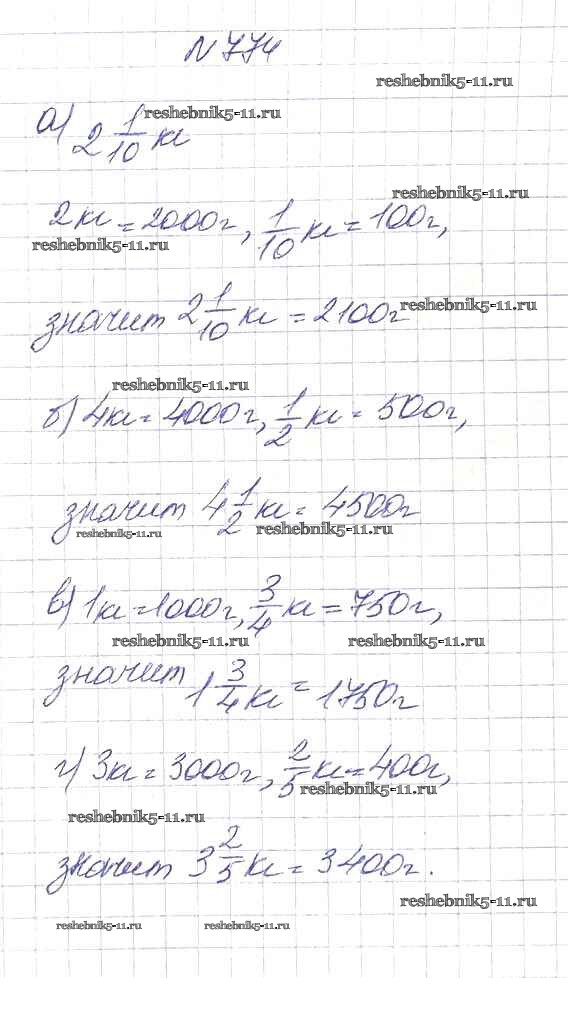 № 774
reshebnik5-11.ru
а) 2 1/10 кг
reshebnik5-11.ru
reshebnik5-11.ru
2 кг = 2000 г, 1/10 кг = 100 г,
reshebnik5-11.ru
значит 2 1/10 кг = 2100 г
reshebnik5-11.ru
reshebnik5-11.ru
б) 4 кг = 4000 г, 1/2 кг = 500 г,
значит 4 1/2 кг = 4500 г
reshebnik5-11.ru reshebnik5-11.ru
в) 1 кг = 1000 г, 3/4 кг = 750 г,
reshebnik5-11.ru reshebnik5-11.ru
значит 1 3/4 кг = 1750 г
г) 3 кг = 3000 г, 2/5 кг = 400 г,
reshebnik5-11.ru
reshebnik5-11.ru
значит 3 2/5 кг = 3400 г.
reshebnik5-11.ru
reshebnik5-11.ru reshebnik5-11.ru